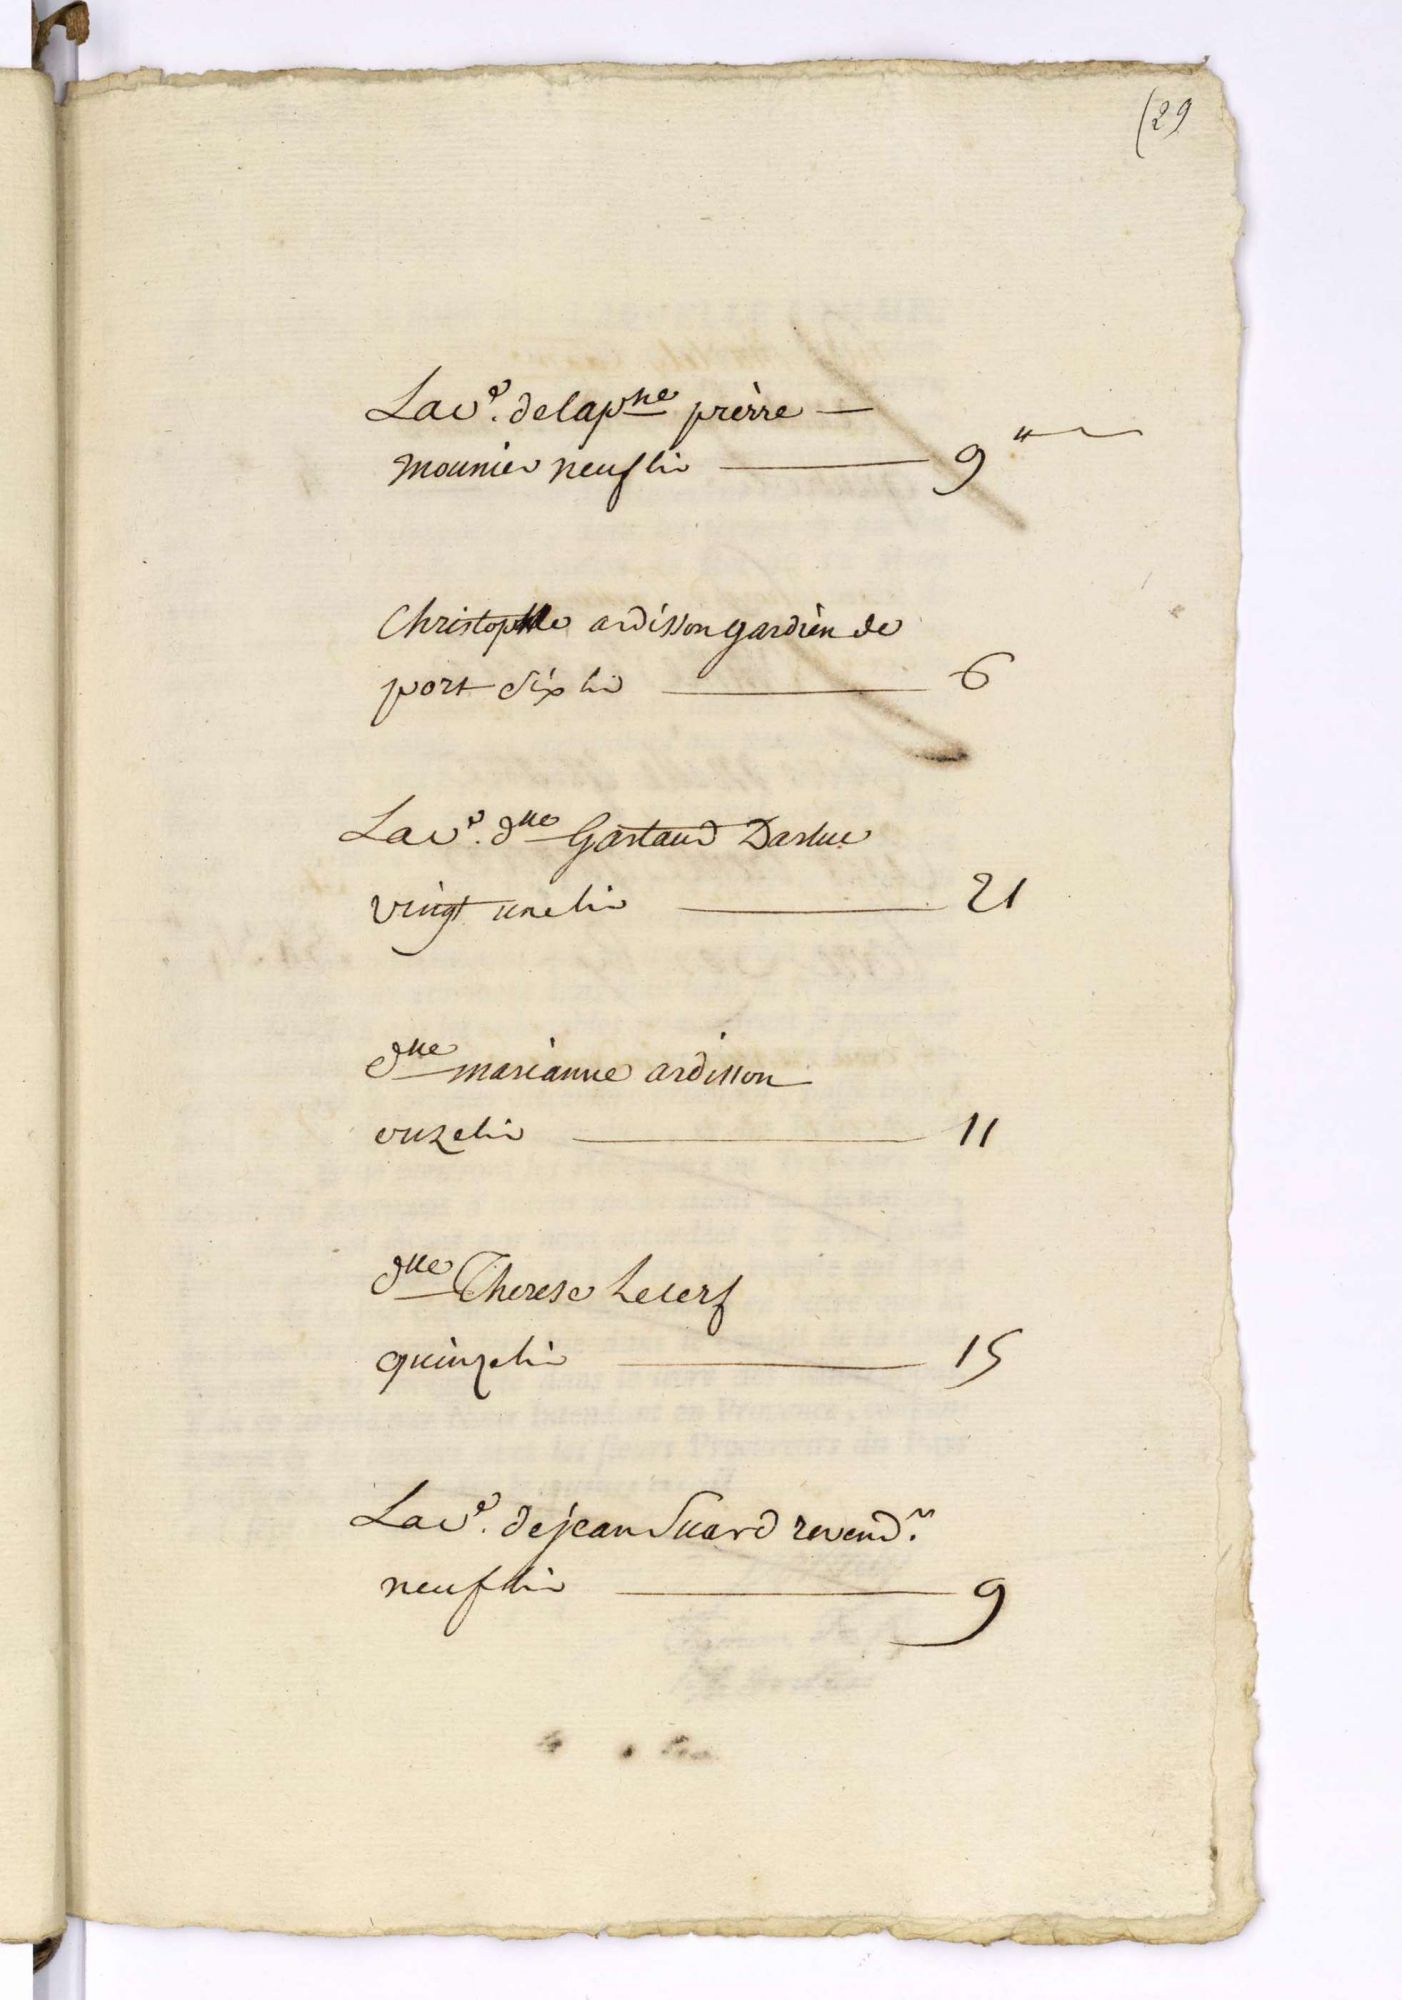 (29
La v.e de capne pierre —
mounier neuf li ——— 9 ₶
Christophle ardisson gardien de
port six li ——— 6
La v.e dlle Gastaud Darluc
vingt une li ——— 21
dlle marianne ardisson
onze li ——— 11
dlle Therese Lecerf
quinze li ——— 15
La v.e de jean Suard revend.r
neuf li ——— 9